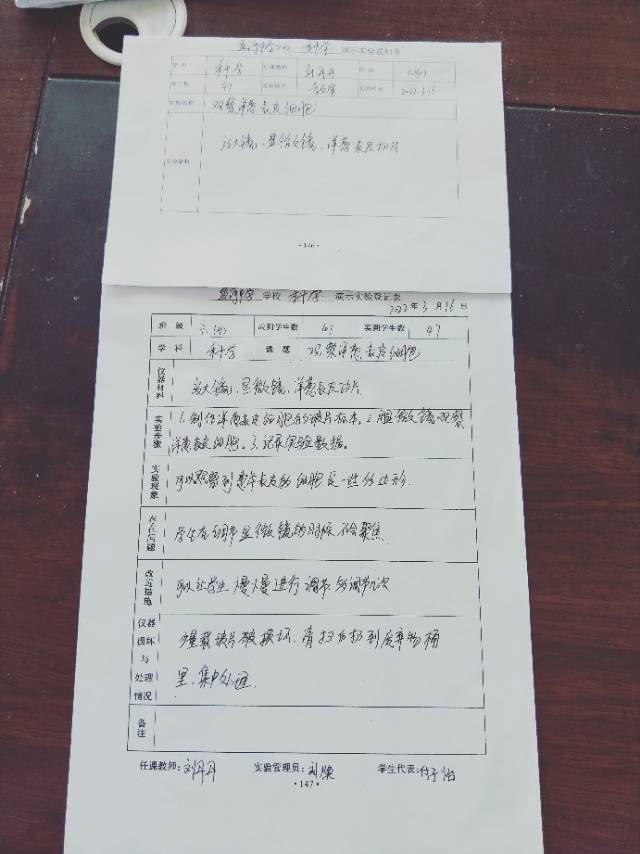 科学 演示实验通知单
科学 任课教师 刘丹丹 六(4)
47 2022.3.15
实验名称 观察洋葱表皮细胞
放大镜、显微镜、洋葱表皮切片
·146·
学校 科学 演示实验登记表
2022年3月16日
班级 六(4) 应到学生数 47 实到学生数 47
学科 科学 课题 观察洋葱表皮细胞
仪器材料 放大镜、显微镜、洋葱表皮切片
实验步骤 1.制作洋葱表皮细胞的玻片标本。2.用显微镜观察
洋葱表皮细胞。3.记录实验数据。
实验现象 可以观察到洋葱表皮的细胞是一些多边形.
存在问题 学生在调节显微镜的时候不会聚焦
改进措施 可以让学生慢慢进行调节.多调节几次
仪器损坏与处理情况 载玻片破损坏.清扫后扔到废弃物桶
里.集中处理.
备注
任课教师:刘丹丹 实验管理员:刘 学生代表:
·147·